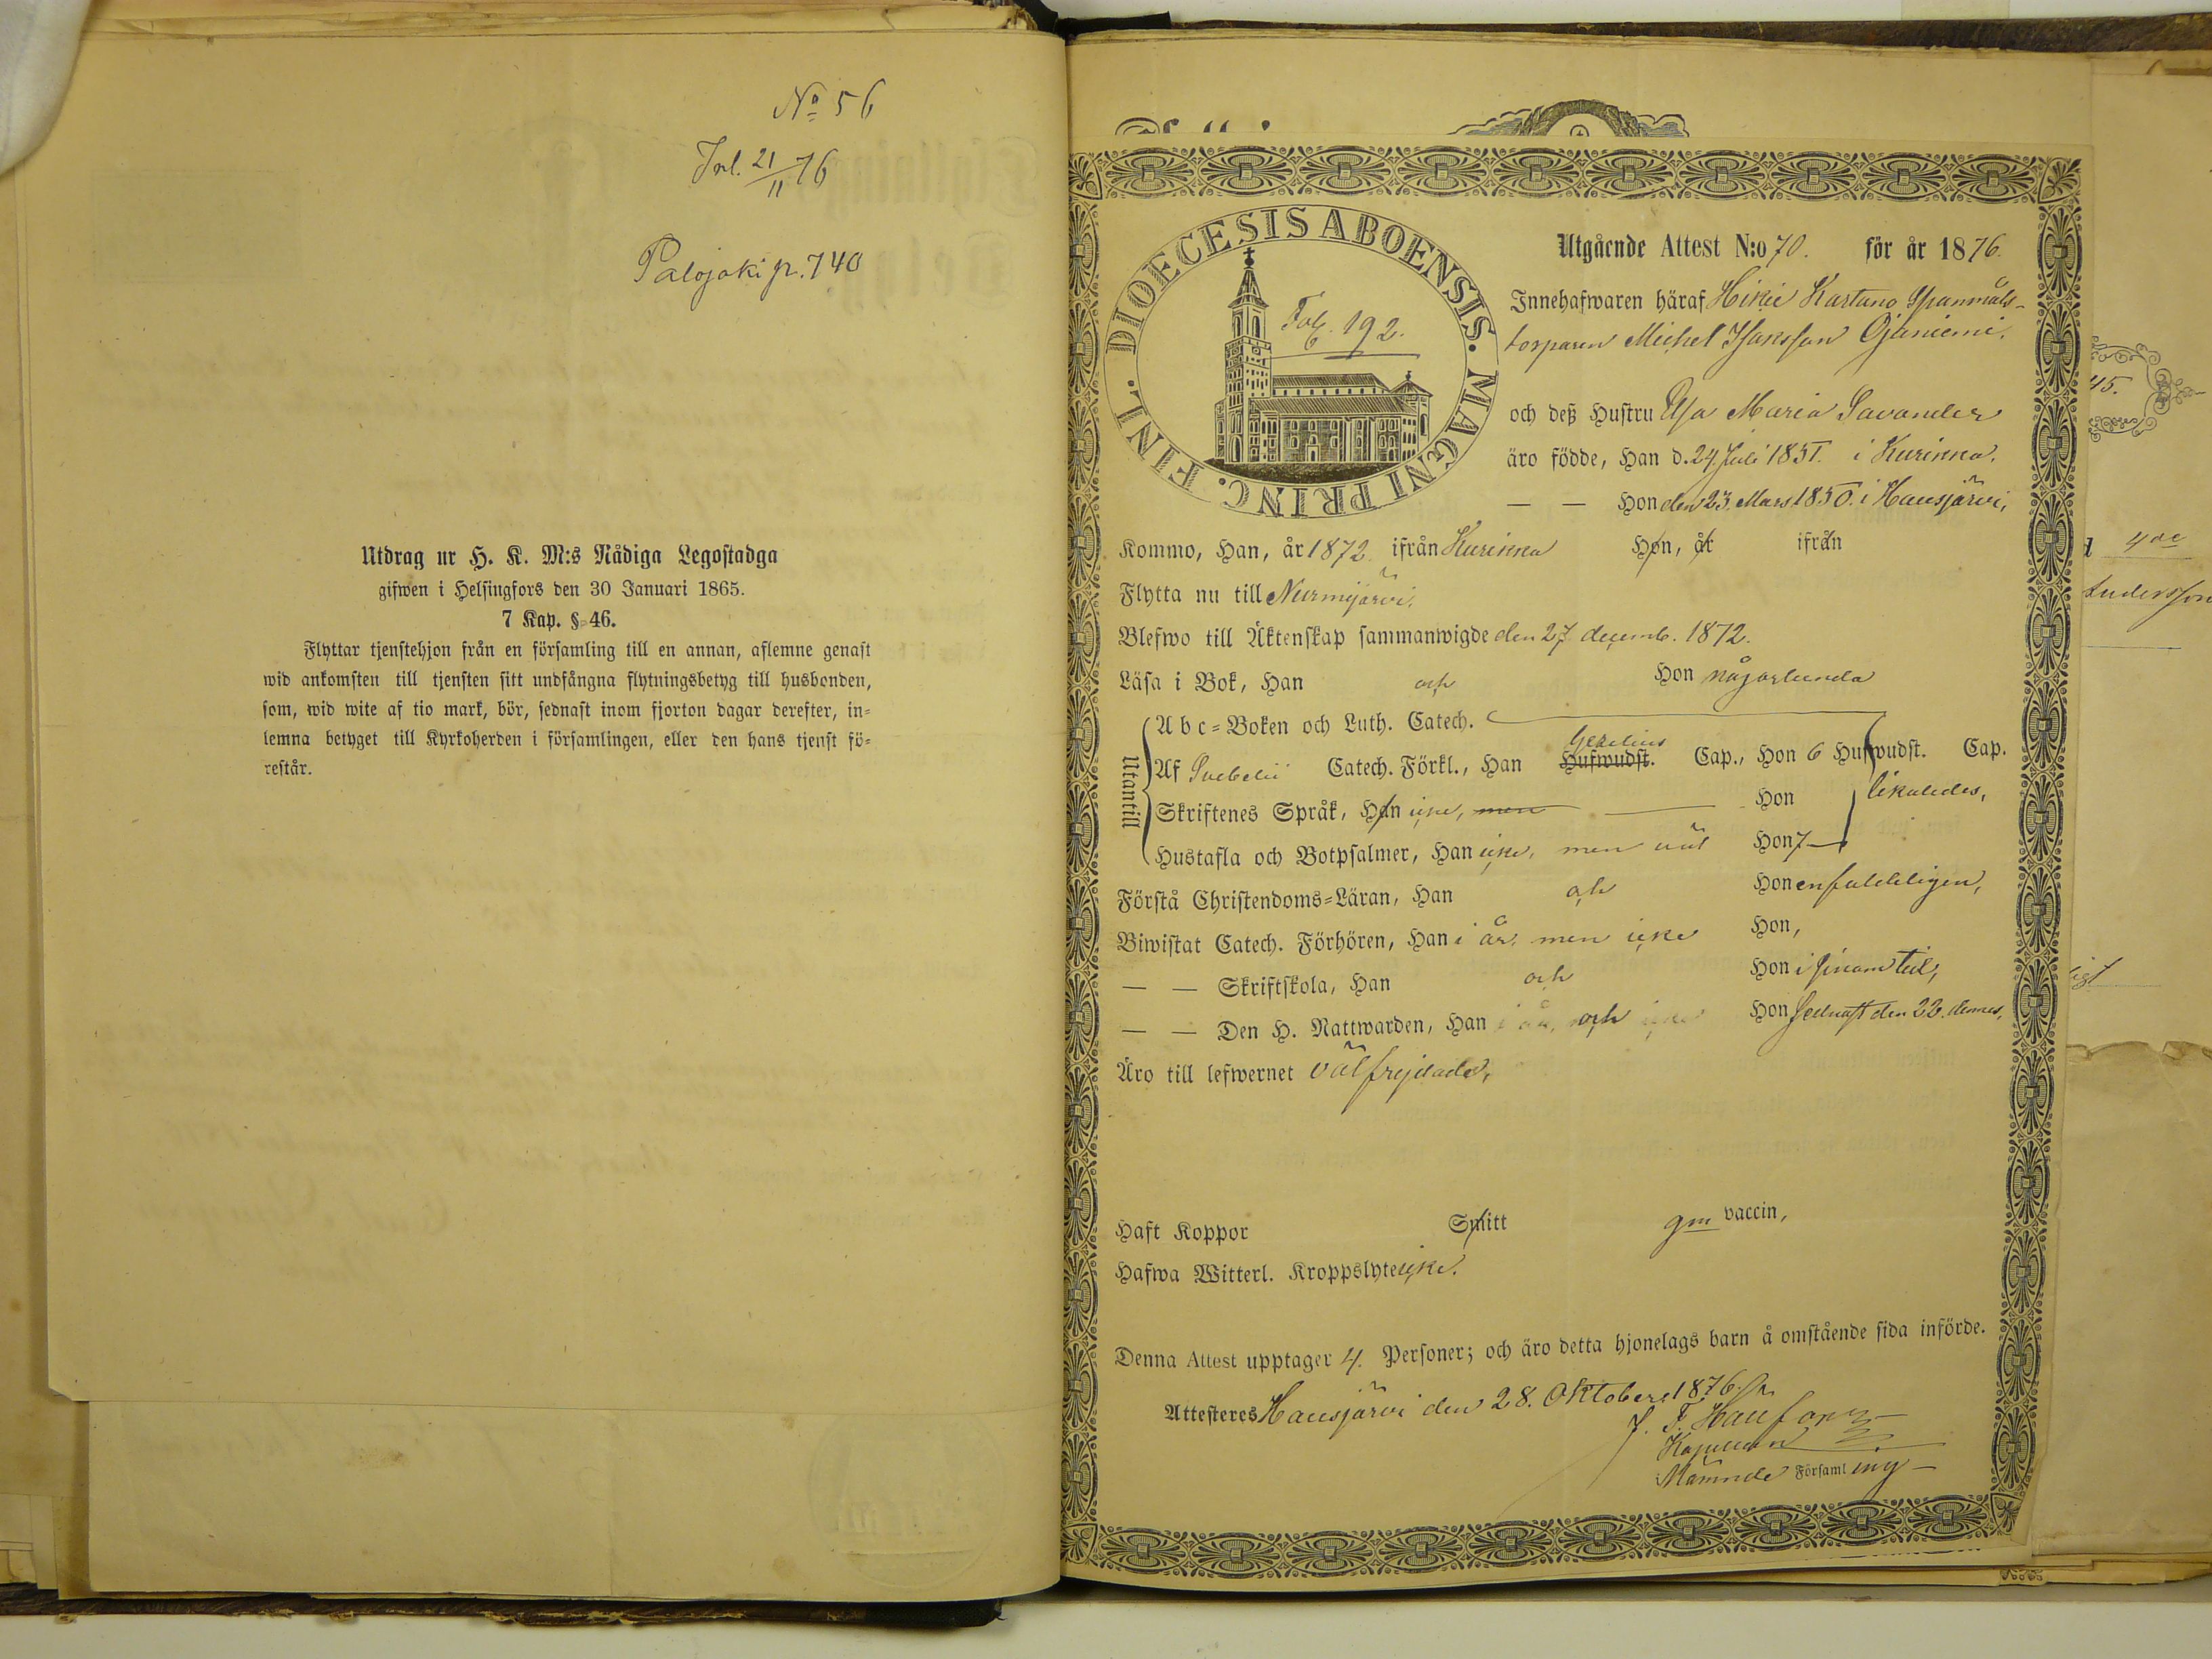 No 56
Inl. 21/11 76
Palojoki p. 740
Utdrag ur H. K. M:s Nådiga Legostadga
gifwen i Helsingfors den 30 Januari 1865.
7 Kap. § 46.
Flyttar tjenstehjon från en församling till en annan, aflemne genast
wid ankomsten till tjensten sitt undfångna flytningsbetyg till husbonden,
som, wid wite af tio mark, bör, sednast inom fjorton dagar derefter, in=
lemna betyget till Kyrkoherden i församlingen, eller den hans tjenst fö=
restår.
DIOECESIS ABOENSIS. MAGNI PRINC. FINL.
Fol. 192.
Utgående Attest N:o 70. för år 1876.
Innehafwaren häraf Hikie Kartano Spanmåls-
torparen Michel Isaksson Ojaniemi.
och deß Hustru Ulla Maria Savander
äro födde, Han d. 24 Juli 1851. i Kurikka.
— — Hon den 23. Mars 1850. i Hausjärvi,
Kommo, Han, år 1872. ifrån Kurikka Hon, år ifrån
Flytta nu till Nurmijärvi.
Blefwo till Äktenskap sammanwigde den 27 decemb. 1872.
Läsa i Bok, Han och Hon någorlunda
Utantill
Abc=Boken och Luth. Catech.
Gezelius
Af Svebelii Catech. Förkl., Han Hufwudst. Cap., Hon 6 Hufwudst. Cap.
Skriftenes Språk, Han icke, men Hon likaledes,
Hustafla och Botpsalmer, Han icke, men väl Hon 7
Förstå Christendoms=Läran, Han och Hon enfaldeligen,
Biwistat Catech. Förhören, Han i år, men icke Hon,
— — Skriftskola, Han och Hon i sinom tid,
— — Den H. Nattwarden, Han och Hon sednast den 22. dennes,
Äro till lefwernet välfrejdade,
Haft Koppor Smitt gm vaccin,
Hafwa Witterl. Kroppslyte icke.
Denna Attest upptager 4. Personer; och äro detta hjonelags barn å omstående sida införde.
Attesteras Hausjärvi den 28. Oktober 1876.
J. F.
Kapellan
Nämnde Församling
45.
Andersson